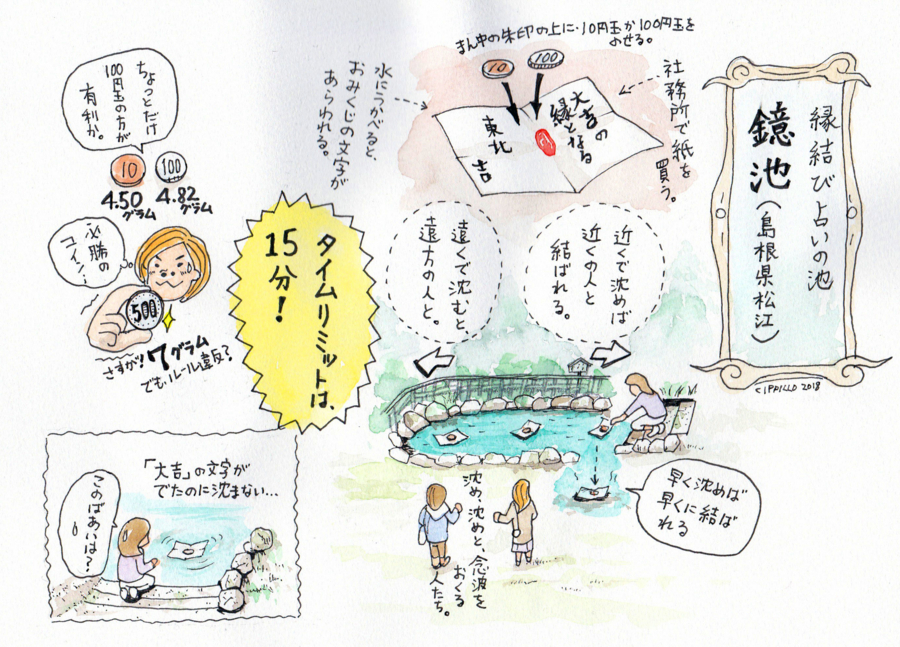 縁結び占いの池
鏡池(島根県松江)
©IPPILLO 2018
まん中の朱印の上に・10円玉か100円玉を
のせる。
10
100
社務所で紙を
買う。
大吉の
縁となる
東北
吉
水にうかべると、
おみくじの文字が
あらわれる。
ちょっとだけ
100円玉の方が
有利か。
10
100
4.50
グラム
4.82
グラム
必勝の
コイン!
500
さすが!7グラム
でも、ルール違反?
タイムリミットは、
15分!
近くで沈めば
近くの人と
結ばれる。
遠くで沈むと、
遠方の人と。
早く沈めば
早くに結ば
れる
沈め、沈めと、念波を
おくる
人たち。
「大吉」の文字が
でたのに沈まない…
このばあいは?